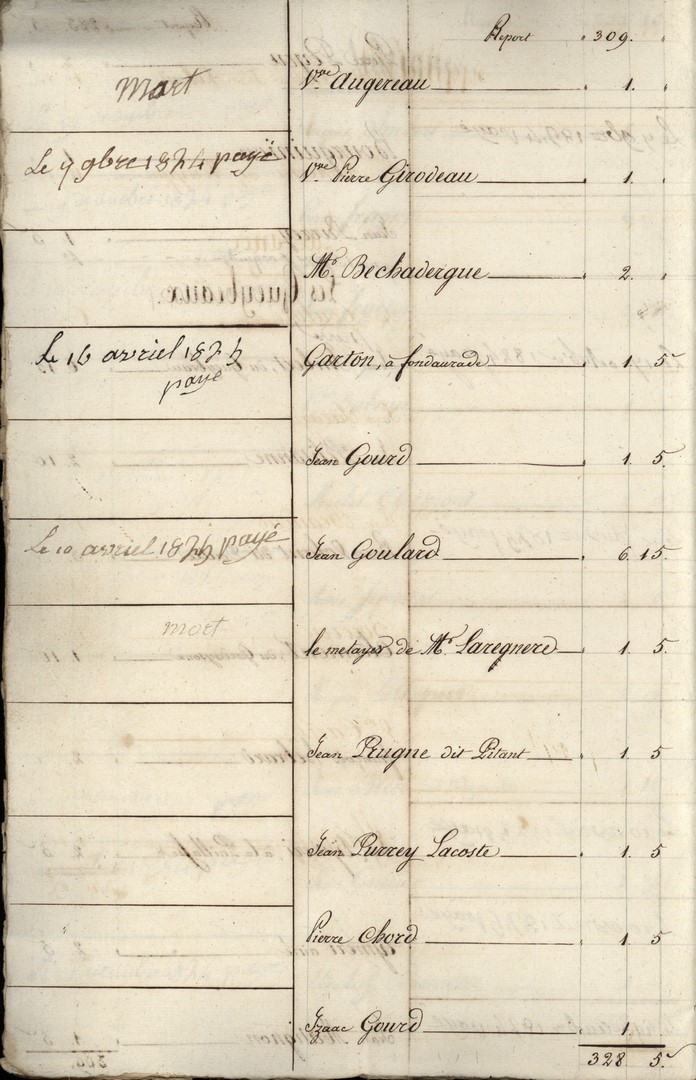 Report 309.
mort Vve Augereau 1.
Le 7 9bre 1874 payé Vve Pierre Girodeau 1.
Mr Bechadergue 2.
Le 16 avriel 1875 Garton, à fondaurade 1. 5
payé
Jean Gourd 1. 5.
Le 10 avriel 1875 payé Jean Goulard 6. 15.
mort le metayer de Mr Laregnere 1. 5.
Jean Prugne dit Pitant 1. 5
Jean Purrey Lacoste 1. 5
Pierre Chord 1. 5
Izaac Gourd 1.
328 5.